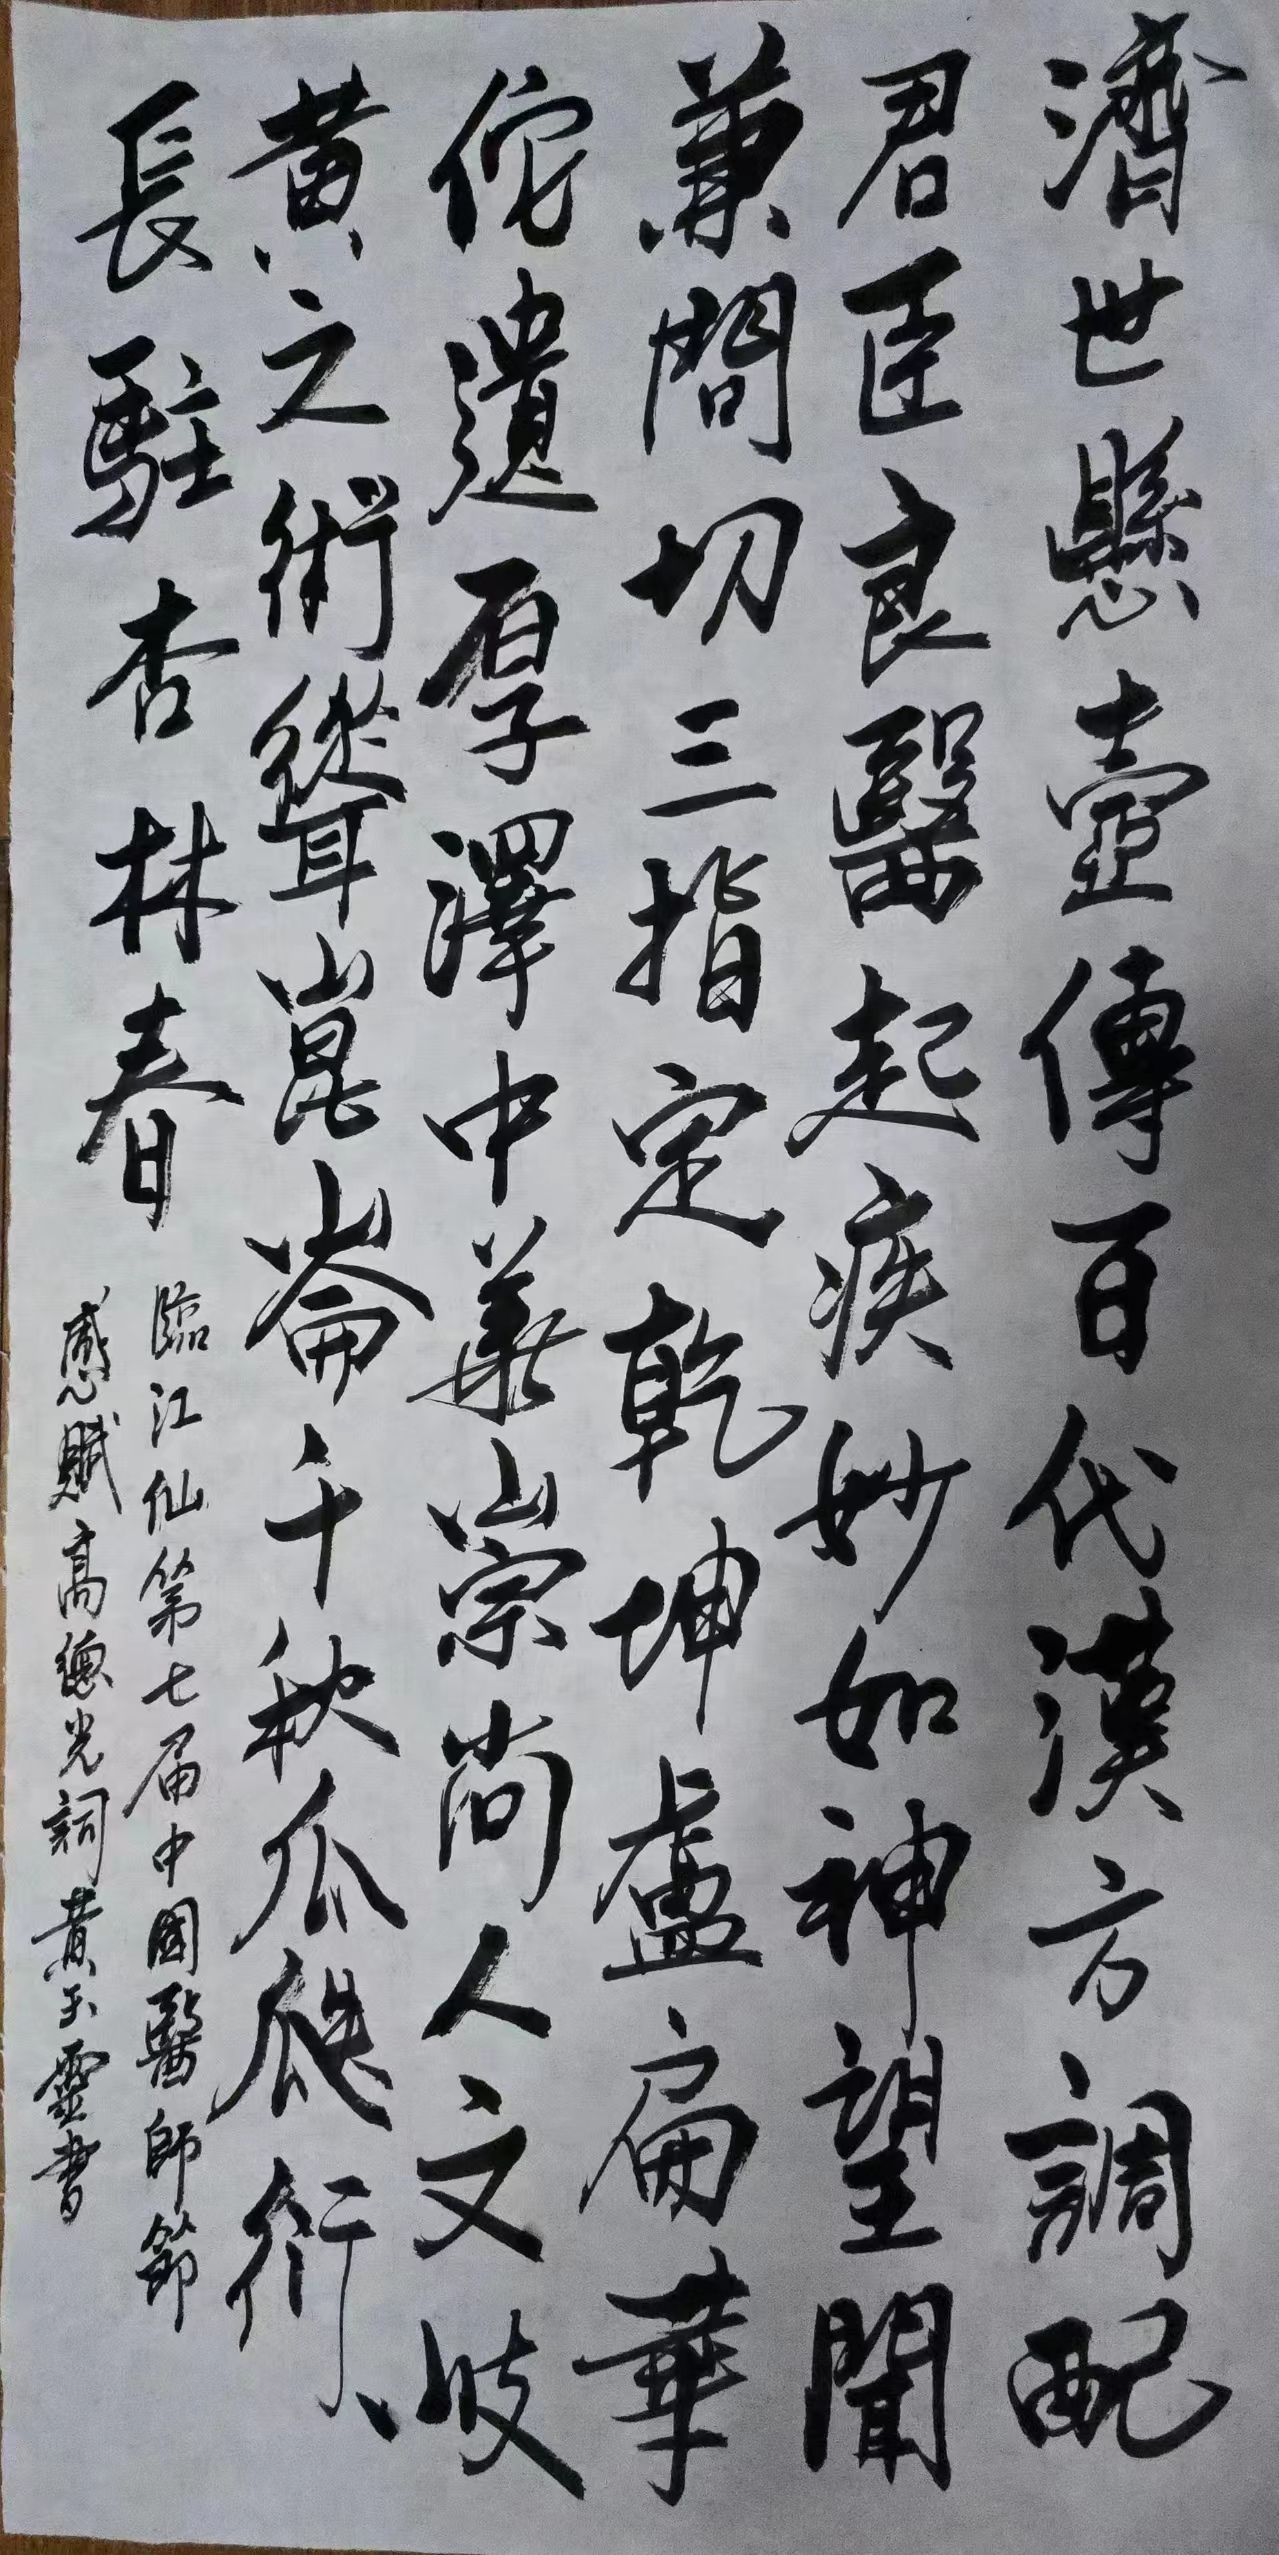 濟世懸壺傳百代漢方調配
君臣良醫起疾妙如神望聞
兼問切三指定乾坤盧扁華
佗遺厚澤中華崇尚人文岐
黃之術聳崑崙千秋瓜瓞衍
長駐杏林春
臨江仙第七届中國醫師節
感賦高德光詞黄玉靈書